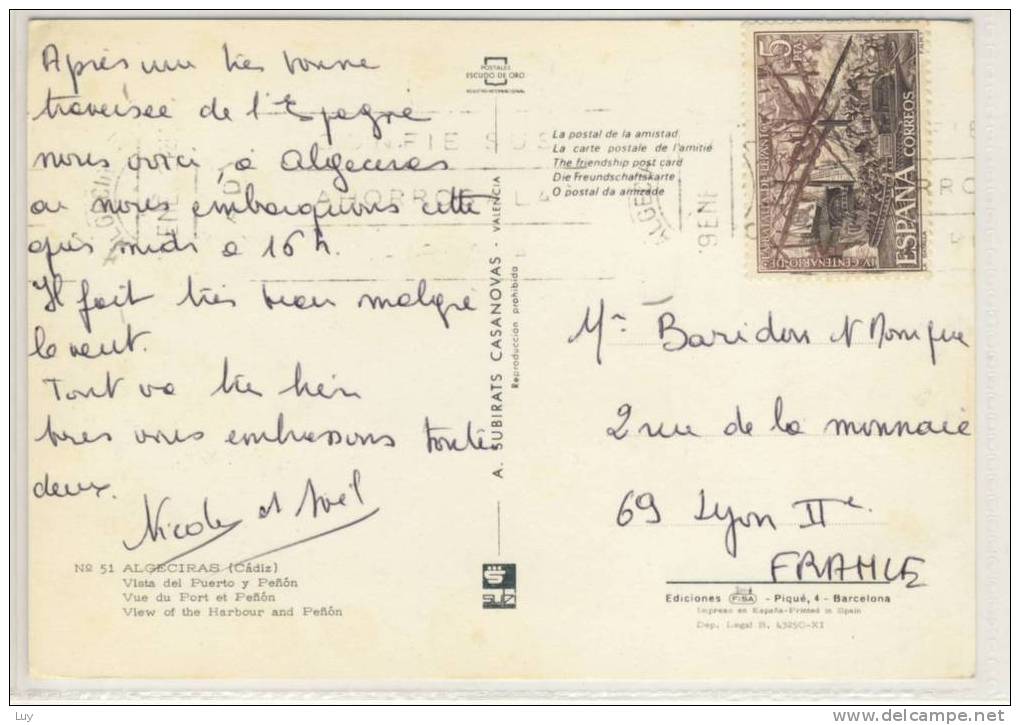 Après une très bonne
traversée de l'Espagne
nous voici, à Algeciras
où nous embarquons cette
après midi à 16 h.
Il fait très beau malgré
le vent.
Tout va très bien
nous vous embrassons toutes
deux.
Nicole et Noël
Nº 51 ALGECIRAS (Cádiz)
Vista del Puerto y Peñón
Vue du Port et Peñón
View of the Harbour and Peñón
POSTALES
ESCUDO DE ORO
REGISTRO INTERNACIONAL
A. SUBIRATS CASANOVAS - VALENCIA
Reproducción prohibida
La postal de la amistad
La carte postale de l'amitié
The friendship post card
Die Freundschaftskarte
O postal da amizade
5
PTA
IV CENTENARIO DE
ESPAÑA CORREOS
ALGECI
9 ENE
NFIE SUS
AHORRO LA
Baridon N Monique
2 rue de la monnaie
69 Lyon IIe
FRANCE
Ediciones FISA - Piqué, 4 - Barcelona
Impreso en España-Printed in Spain
Dep. Legal B. 43250-XI
Luy
www.delcampe.net